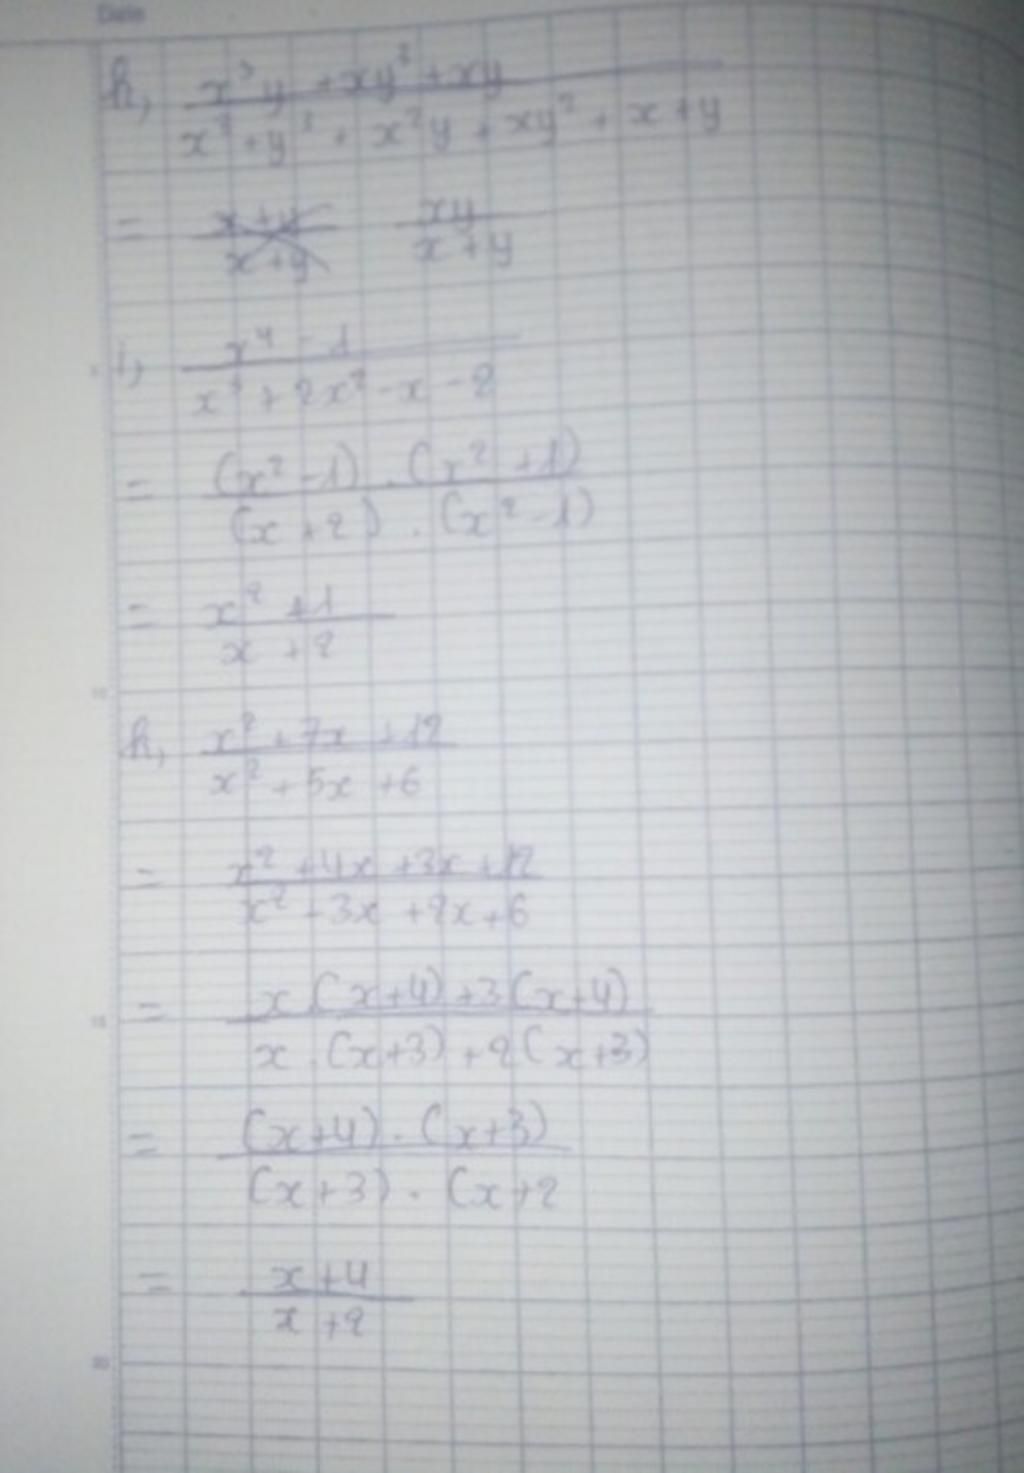 Date
h, x³y + xy³ + xy / x³ + y³ + x²y + xy² + x + y
= x+y / x+y xy / x+y
i, x⁴ - 1 / x³ + 2x² - x - 2
= (x² - 1) . (x² + 1) / (x + 2) . (x² - 1)
= x² + 1 / x + 2
k, x² + 7x + 12 / x² + 5x + 6
= x² + 4x + 3x + 12 / x² + 3x + 2x + 6
= x.(x+4) + 3(x+4) / x.(x+3) + 2(x+3)
= (x+4) . (x+3) / (x+3) . (x+2
= x+4 / x+2
10
15
20